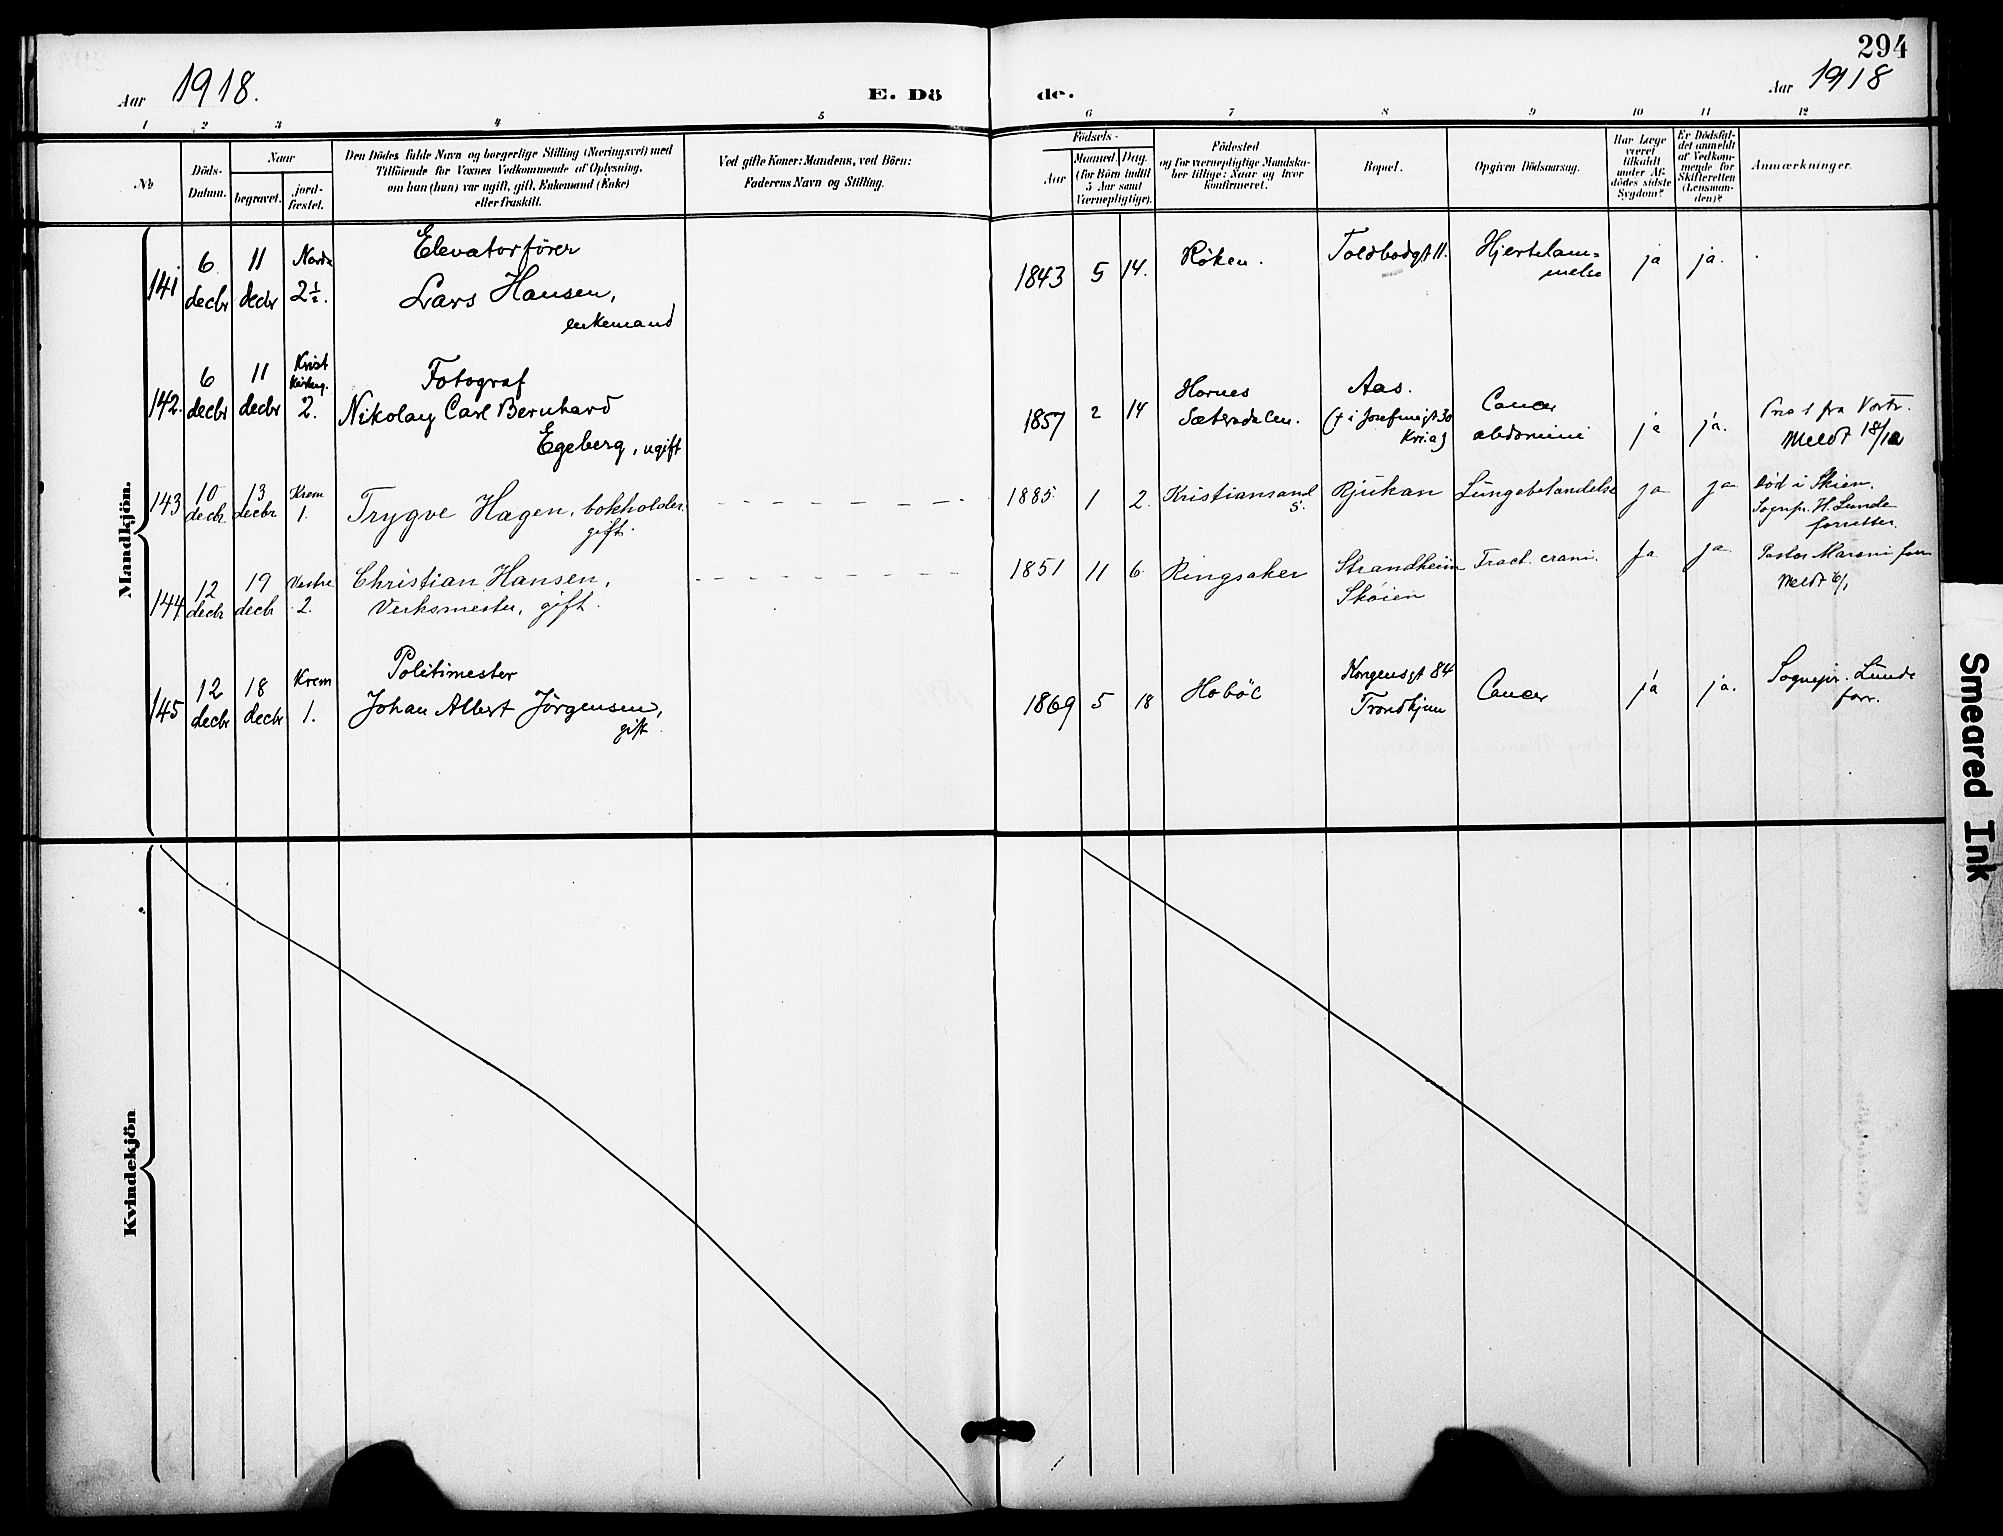 294
Aar 1918.
E. Dö
de.
Aar 1918
1 2 3 4 5 6 7 8 9 10 11 12
No
Döds-
Datum.
Naar
begravet.
jord-
fæstet.
Den Dödes fulde Navn og borgerlige Stilling (Næringsvei) med
Tilföiende for Voxnes Vedkommende af Oplysning,
om han (hun) var ugift, gift, Enkemand (Enke)
eller fraskilt.
Ved gifte Koner: Mandens, ved Börn:
Faderens Navn og Stilling.
Födsels-
Aar
Maaned. Dag.
(for Börn indtil
5 Aar samt
Værnepligtige).
Födested
og for værnepligtige Mandska-
ber tillige: Naar og hvor
konfirmeret.
Bopæl.
Opgiven Dödsaarsag.
Har Læge
været
tilkaldt
under Af-
dödes sidste
Sygdom?
Er Dödsfal-
det anmeldt
af Vedkom-
mende for
Skifteretten
(Lensman-
den)?
Anmærkninger.
Mandkjön.
141
6
decbr
11
decbr
2½.
Elevatorfører
Lars Hansen,
enkemand
1843 5 14.
Röken.
Toldbodgt 11.
Hjertelam=
melse
ja ja.
142.
6
decbr
11
decbr
Krist
2.
Fotograf
Nikolay Carl Bernhard
Egeberg, ugift
1857 2 14
Hornes
Sætersdalen.
Aas.
(† i Josefinesgt 30
Kr.ia)
Cancer
abdomini
ja ja.
fra Vestr.
Meldt 18/12
143
10
decbr.
13
decbr
Krem
1.
Trygve Hagen, bokholder,
gift.
1885 1 2.
Kristiansand
S.
Rjukan
Lungebetændelse
ja ja
Död i Skien.
Sognepr. H. Lunde
forretter.
144
12
decbr
19
decb
Vestre
2.
Christian Hansen,
Verksmester, gift.
1851 11 6.
Ringsaker
Strandheim
Sköien
Fract. crani.
ja ja
Pastor Maroni forr
Meldt
145
12
decbr
18
decbr
Krem
1.
Politimester
Johan Albert Jörgensen,
gift.
1869 5 18
Haböl
Kongensgt 84
Trondhjem
Cancer
ja ja.
Sognepr. Lunde
forr.
Kvindekjön
Smeared Ink